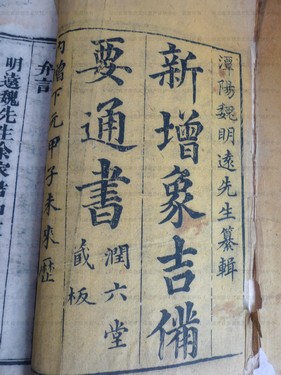 潭陽魏明遠先生纂輯
新增象吉備
要通書
潤六堂
藏板
内增下元甲子未來歷
弁言
明遠魏先生